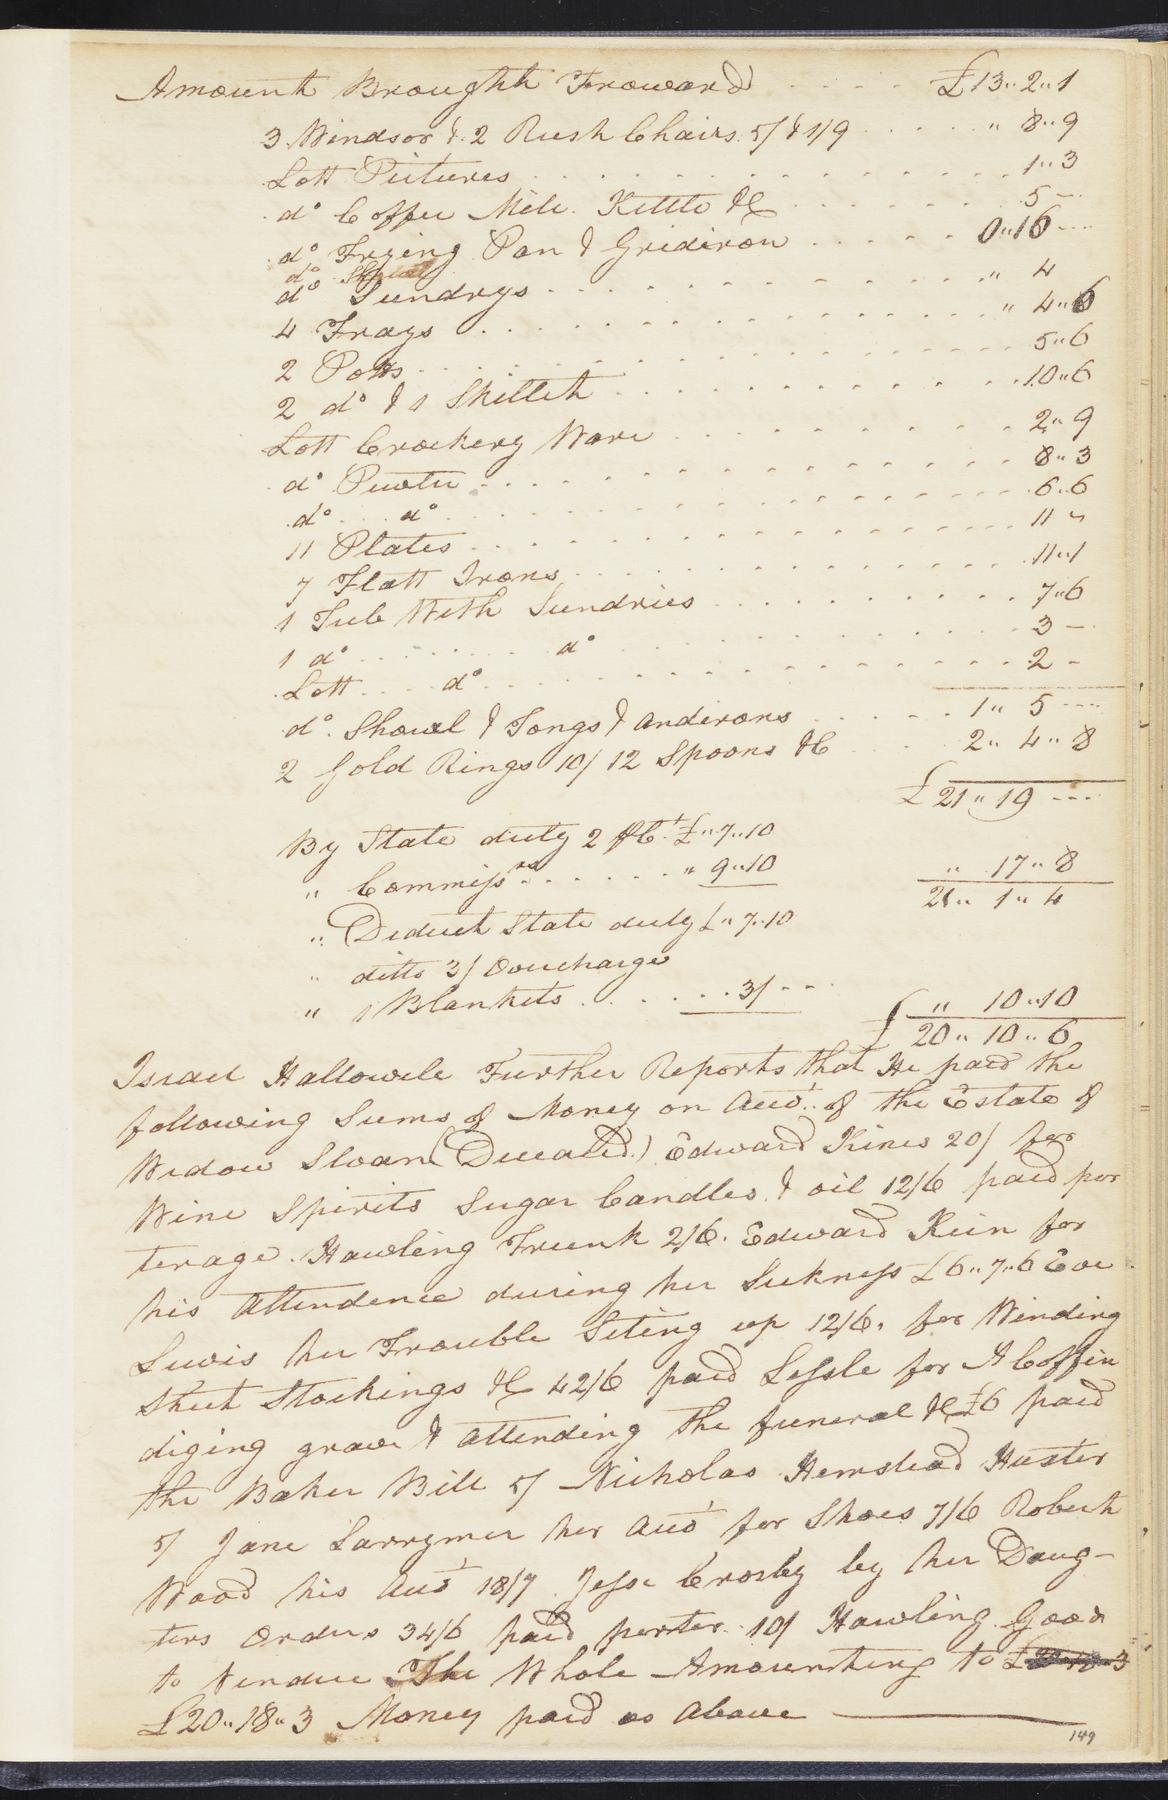 Amount Broughtt Froward £13..2..1
3 Windsor & 2 Rush Chairs 5/ & 1/9 " 8..9
Lott Pictures 1..3
do Coffee Mill Kittle &C 5 -
do Frying Pan & Gridiron 0..16 -
do
do Sundrys " 4
4 Trays " 4..6
2 Potts 5..6
2 do & 1 Skillett 10..6
Lott Crockery Ware 2..9
do Pewter 8..3
do do 6..6
11 Plates 11 -
7 Flatt Irons 11..1
1 Tub With Sundries 7..6
1 do do 3 -
Lott do 2 -
do Shovel & Tongs & andirons 1.. 5 -
2 Gold Rings 10/ 12 Spoons &C 2.. 4.. 8
£21..19 -
By State duty 2 PCt £..7..10
" Commissns " 9..10 " 17..8
21.. 1.. 4
" Deduct State duty £..7..10
" ditto 3/ Overcharge
" 1 Blankets 3/ - £ " 10..10
20.. 10.. 6
Israel Hallowell Further Reports that He paid the
following Sums of Money on Acct. of the Estate of
Widow Sloan (Deceasd.) Edward Kines 20/ for
Wine Spirits Sugar Candles & oil 12/6 paid por
terage. Hawling Trunk 2/6. Edward Kein for
his Attendence during her Sickness £6..7..6 Eve
Lewis her Trouble Siting up 12/6. for Winding
Sheet Stockings &C 42/6 paid Lessle for A Coffin
diging grave & attending the funeral &C £6 paid
the Baker Bill 5/ Nicholas Hemstead Huxter
5/ Jane Larrymer her Acct for Shoes 7/6 Robert
Wood his Acct 18/7 Jesse Crosby by her Daug-
ters Orders 34/6 paid porter 10/ Hawling Good
to Vendue The Whole Amounting to £
£20..18..3 Money paid as Above
149